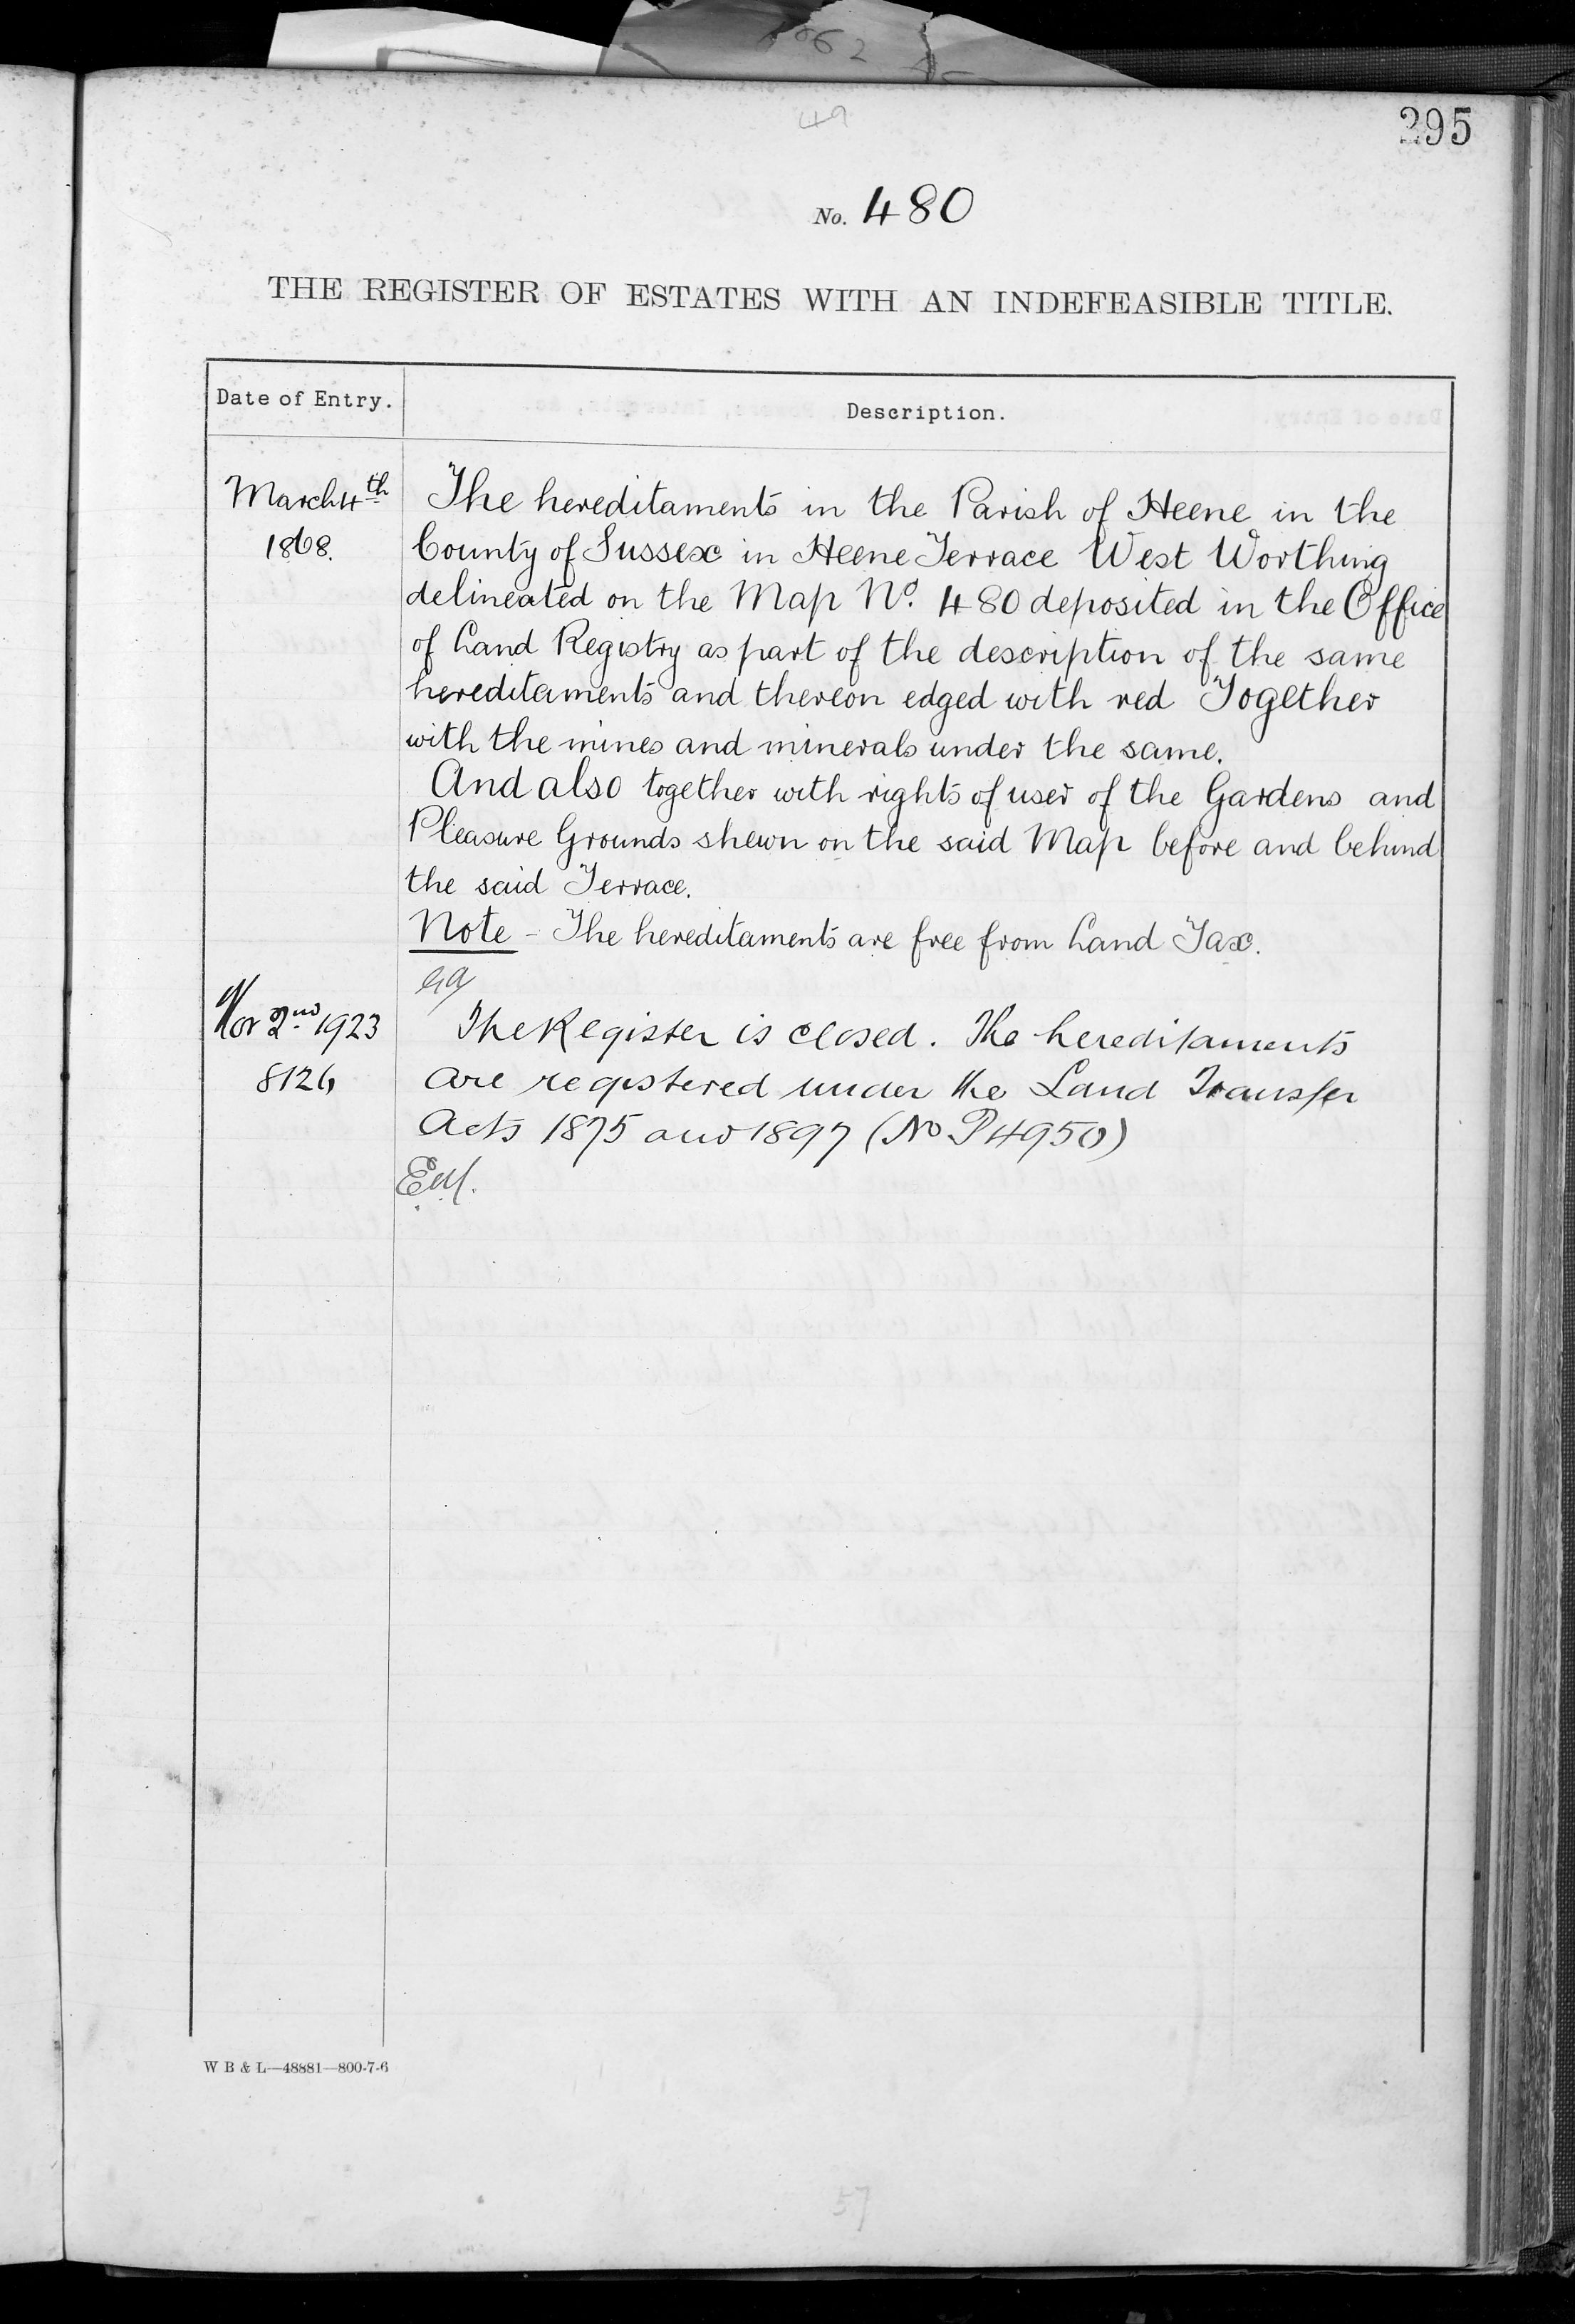 295
49
No. 480
THE REGISTER OF ESTATES WITH AN INDEFEASIBLE TITLE.
Date of Entry.
Description.
March 4th
1868.
The hereditaments in the Parish of Heene in the
County of Sussex in Heene Terrace West Worthing
delineated on the Map No. 480 deposited in the Office
of Land Registry as part of the description of the same
hereditaments and thereon edged with red Together
with the mines and minerals under the same.
And also together with rights of user of the Gardens and
Pleasure Grounds shewn on the said Map before and behind
the said Terrace.
Note - The hereditaments are free from Land Tax.
Nov 2nd 1923
8126
The Register is closed. The hereditaments
are registered under the Land Transfer
Acts 1875 and 1897 (No P4950)
W B & L—48881—800-7-6
57